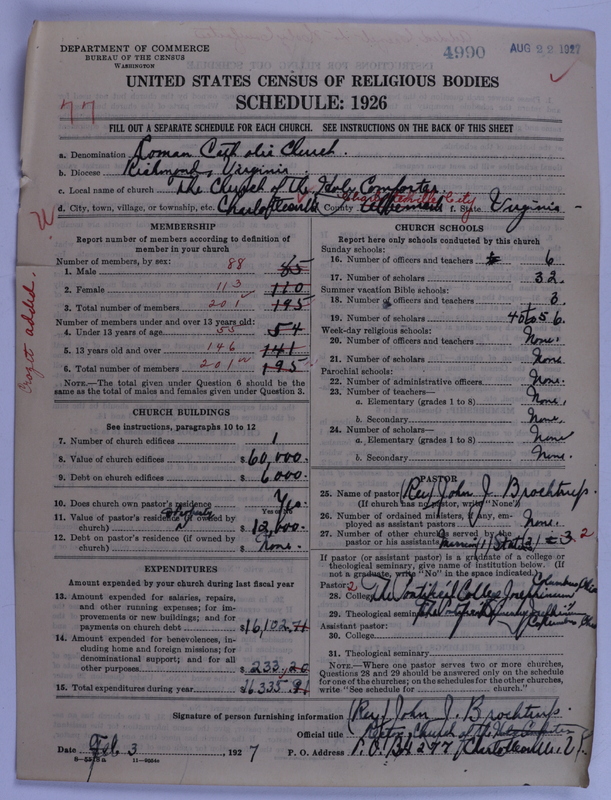 DEPARTMENT OF COMMERCE
BUREAU OF THE CENSUS
WASHINGTON
4990
AUG 22 1927
UNITED STATES CENSUS OF RELIGIOUS BODIES
SCHEDULE: 1926
77
FILL OUT A SEPARATE SCHEDULE FOR EACH CHURCH. SEE INSTRUCTIONS ON THE BACK OF THIS SHEET
a. Denomination Roman Catholic Church.
b. Diocese Richmond, Virginia
c. Local name of church The Church of the Holy Comforter
d. City, town, village, or township, etc. Charlottesville County Albemarle Charlottesville City f. State Virginia
Crozet added.
MEMBERSHIP
Report number of members according to definition of member in your church
Number of members, by sex:
1. Male 88 85
2. Female 113 110
3. Total number of members 201 195
Number of members under and over 13 years old:
4. Under 13 years of age 55 54
5. 13 years old and over 146 141
6. Total number of members 201 195
NOTE.—The total given under Question 6 should be the same as the total of males and females given under Question 3.
CHURCH BUILDINGS
See instructions, paragraphs 10 to 12
7. Number of church edifices 1
8. Value of church edifices $60,000.
9. Debt on church edifices $6000.
10. Does church own pastor's residence? Yes.
Yes or No
11. Value of pastor's residence (if owned by church) $12,000.
12. Debt on pastor's residence (if owned by church) $None.
EXPENDITURES
Amount expended by your church during last fiscal year
13. Amount expended for salaries, repairs, and other running expenses; for improvements or new buildings; and for payments on church debt $16,102.71
14. Amount expended for benevolences, including home and foreign missions; for denominational support; and for all other purposes $233.20
15. Total expenditures during year $16335.91
CHURCH SCHOOLS
Report here only schools conducted by this church
Sunday schools:
16. Number of officers and teachers 6
17. Number of scholars 32.
Summer vacation Bible schools:
18. Number of officers and teachers 3.
19. Number of scholars 40 to 56.
Week-day religious schools:
20. Number of officers and teachers None.
21. Number of scholars None.
Parochial schools:
22. Number of administrative officers None.
23. Number of teachers—
a. Elementary (grades 1 to 8) None.
b. Secondary None.
24. Number of scholars—
a. Elementary (grades 1 to 8) None
b. Secondary None.
PASTOR
25. Name of pastor (Rev) John J. Brochtrup.
(If church has no pastor, write "None")
26. Number of ordained ministers, if any, employed as assistant pastors None.
27. Number of other churches served by the pastor or his assistants 3 2
If pastor (or assistant pastor) is a graduate of a college or theological seminary, give name of institution below. (If not a graduate, write "No" in the space indicated.)
Pastor: 2
28. College The Pontifical College Josephinum Columbus Ohio
29. Theological seminary The Pontifical College Josephinum Columbus Ohio
Assistant pastor:
30. College
31. Theological seminary
NOTE.—Where one pastor serves two or more churches, Questions 28 and 29 should be answered only on the schedule for one of the churches; on the schedules for the other churches, write "See schedule for church."
Signature of person furnishing information (Rev) John J. Brochtrup.
Official title Rector, Church of the Holy Comforter
Date Feb 3 1927
P. O. Address P.O. Bx 277, Charlottesville Va.
11—9054a